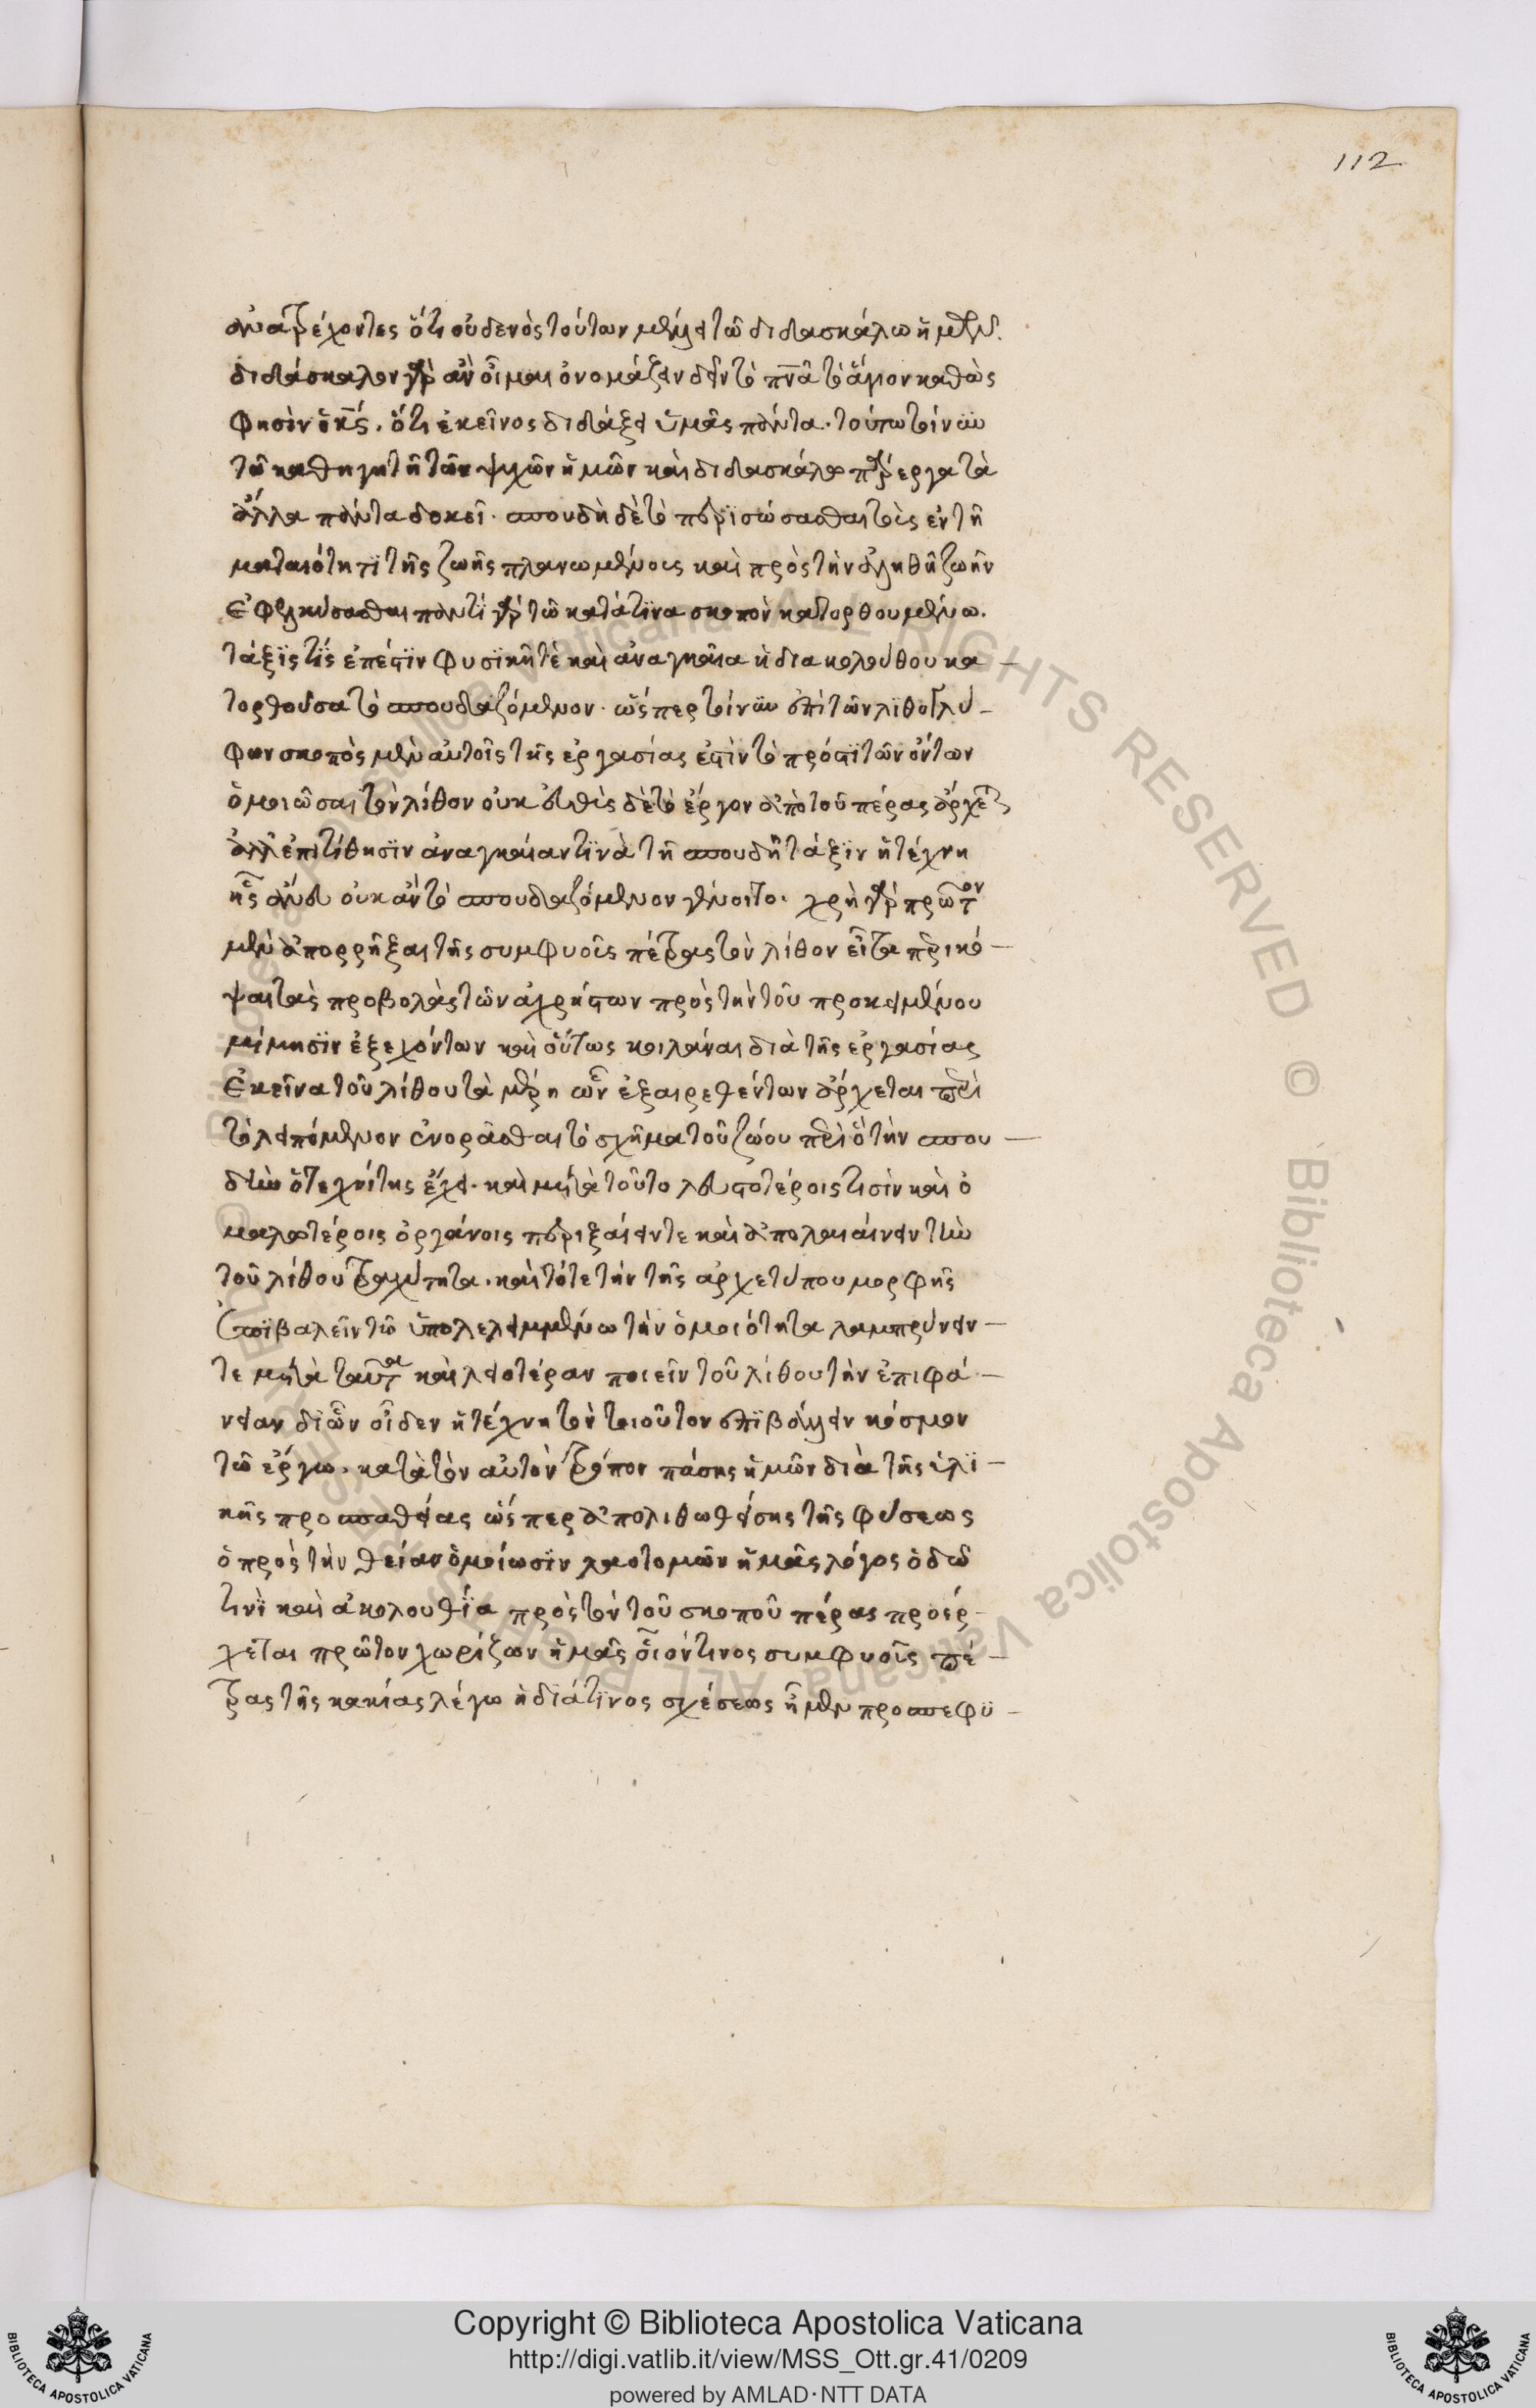 112
ἀνατρέχοντες ὅτι οὐδενὸς τούτων μέλει τῶ διδασκάλω ἡμῶν.
διδάσκαλον γὰρ ἂν οἶμαι ὀνομάζειν δεῖν τὸ πνᾶ τὸ ἅγιον καθὼς
φησὶν ὁ κς. ὅτι ἐκεῖνος διδάξει ὑμᾶς πάντα. τούτω τοίνυν
τῶ καθηγητῆ τῶν ψυχῶν ἡμῶν καὶ διδασκάλω πάρεργα τὰ
ἄλλα πάντα δοκεῖ. σπουδὴ δὲ τὸ περισώσασθαι τοὺς ἐν τῆ
ματαιότητι τῆς ζωῆς πλανωμένους καὶ πρὸς τὴν ἀληθῆ ζωὴν
ἐφελκύσασθαι παντὶ γὰρ τῶ κατάτινα σκοπὸν κατορθουμένω.
τάξις τίς ἐπέστιν φυσικῆ τὲ καὶ ἀναγκαῖα ἡ διακολούθου κα
τορθοῦσα τὸ σπουδαζόμενον. ὥσπερ τοίνυν ἐπὶ τῶν λιθογλύ
φων σκοπὸς μὲν αὐτοῖς τῆς ἐργασίας ἐστὶν τὸ πρόςτι τῶν ὄντων
ὁμοιῶσαι τὸν λίθον οὐκ εὐθὺς δὲ τὸ ἔργον ἀπὸ τοῦ πέρας ἄρχεται
ἀλλ ἐπιτίθησιν ἀναγκαίαν τινὰ τῆ σπουδῆ τάξιν ἡ τέχνη
ἧς ἄνευ οὐκ ἂν τὸ σπουδαζόμενον γένοιτο. χρὴ γὰρ πρῶτον
μὲν ἀπορρῆξαι τῆς συμφυοῦς πέτρας τὸν λίθον εἶτα περικό
ψαι τὰς προβολὰς τῶν ἀχρήστων πρὸς τὴν τοῦ προκειμένου
μίμησιν ἐξεχόντων καὶ οὕτως κοιλάναι διὰ τῆς ἐργασίας
ἐκεῖνα τοῦ λίθου τὰ μέρη ὧν ἐξαιρεθέντων ἄρχεται περὶ
τὸ λειπόμενον ἐνορᾶσθαι τὸ σχῆμα τοῦ ζώου περὶ ὃ τὴν σπου
δὴν ὁ τεχνίτης ἔχει. καὶ μετὰ τοῦτο λεπτοτέροις τισὶν καὶ ὁ
μαλωτέροις ὀργάνοις περιξαίειν τε καὶ ἀπολειαίνειν τὴν
τοῦ λίθου τραχύτητα. καὶ τότε τὴν τῆς ἀρχετύπου μορφῆς
ἐπιβαλεῖν τῶ ὑπολελειμμένω τὴν ὁμοιότητα λαμπρύνειν
τε μετὰ ταῦτα καὶ λειοτέραν ποιεῖν τοῦ λίθου τὴν ἐπιφά
νειαν δι ὧν οἶδεν ἡ τέχνη τὸν τοιοῦτον ἐπιβάλλειν κόσμον
τῶ ἔργω. κατὰ τὸν αὐτὸν τρόπον πάσης ἡμῶν διὰ τῆς ὑλι
κῆς προσπαθείας ὥσπερ ἀπολιθωθείσης τῆς φύσεως
ὁ πρὸς τὴν θείαν ὁμοίωσιν λαοτομῶν ἡμᾶς λόγος ὁδῶ
τινὶ καὶ ἀκολουθία πρὸς τὸν τοῦ σκοποῦ πέρας προέρ
χεται πρῶτον χωρίζων ἡμᾶς οἷόν τινος συμφυοῦς πέ
τρας τῆς κακίας λέγω ἡ διάτινος σχέσεως ἧ μὲν προσπεφυ
Copyright © Biblioteca Apostolica Vaticana
http://digi.vatlib.it/view/MSS_Ott.gr.41/0209
powered by AMLAD·NTT DATA
BIBLIOTECA APOSTOLICA VATICANA
BIBLIOTECA APOSTOLICA VATICANA
© Biblioteca Apostolica Vaticana ALL RIGHTS RESERVED